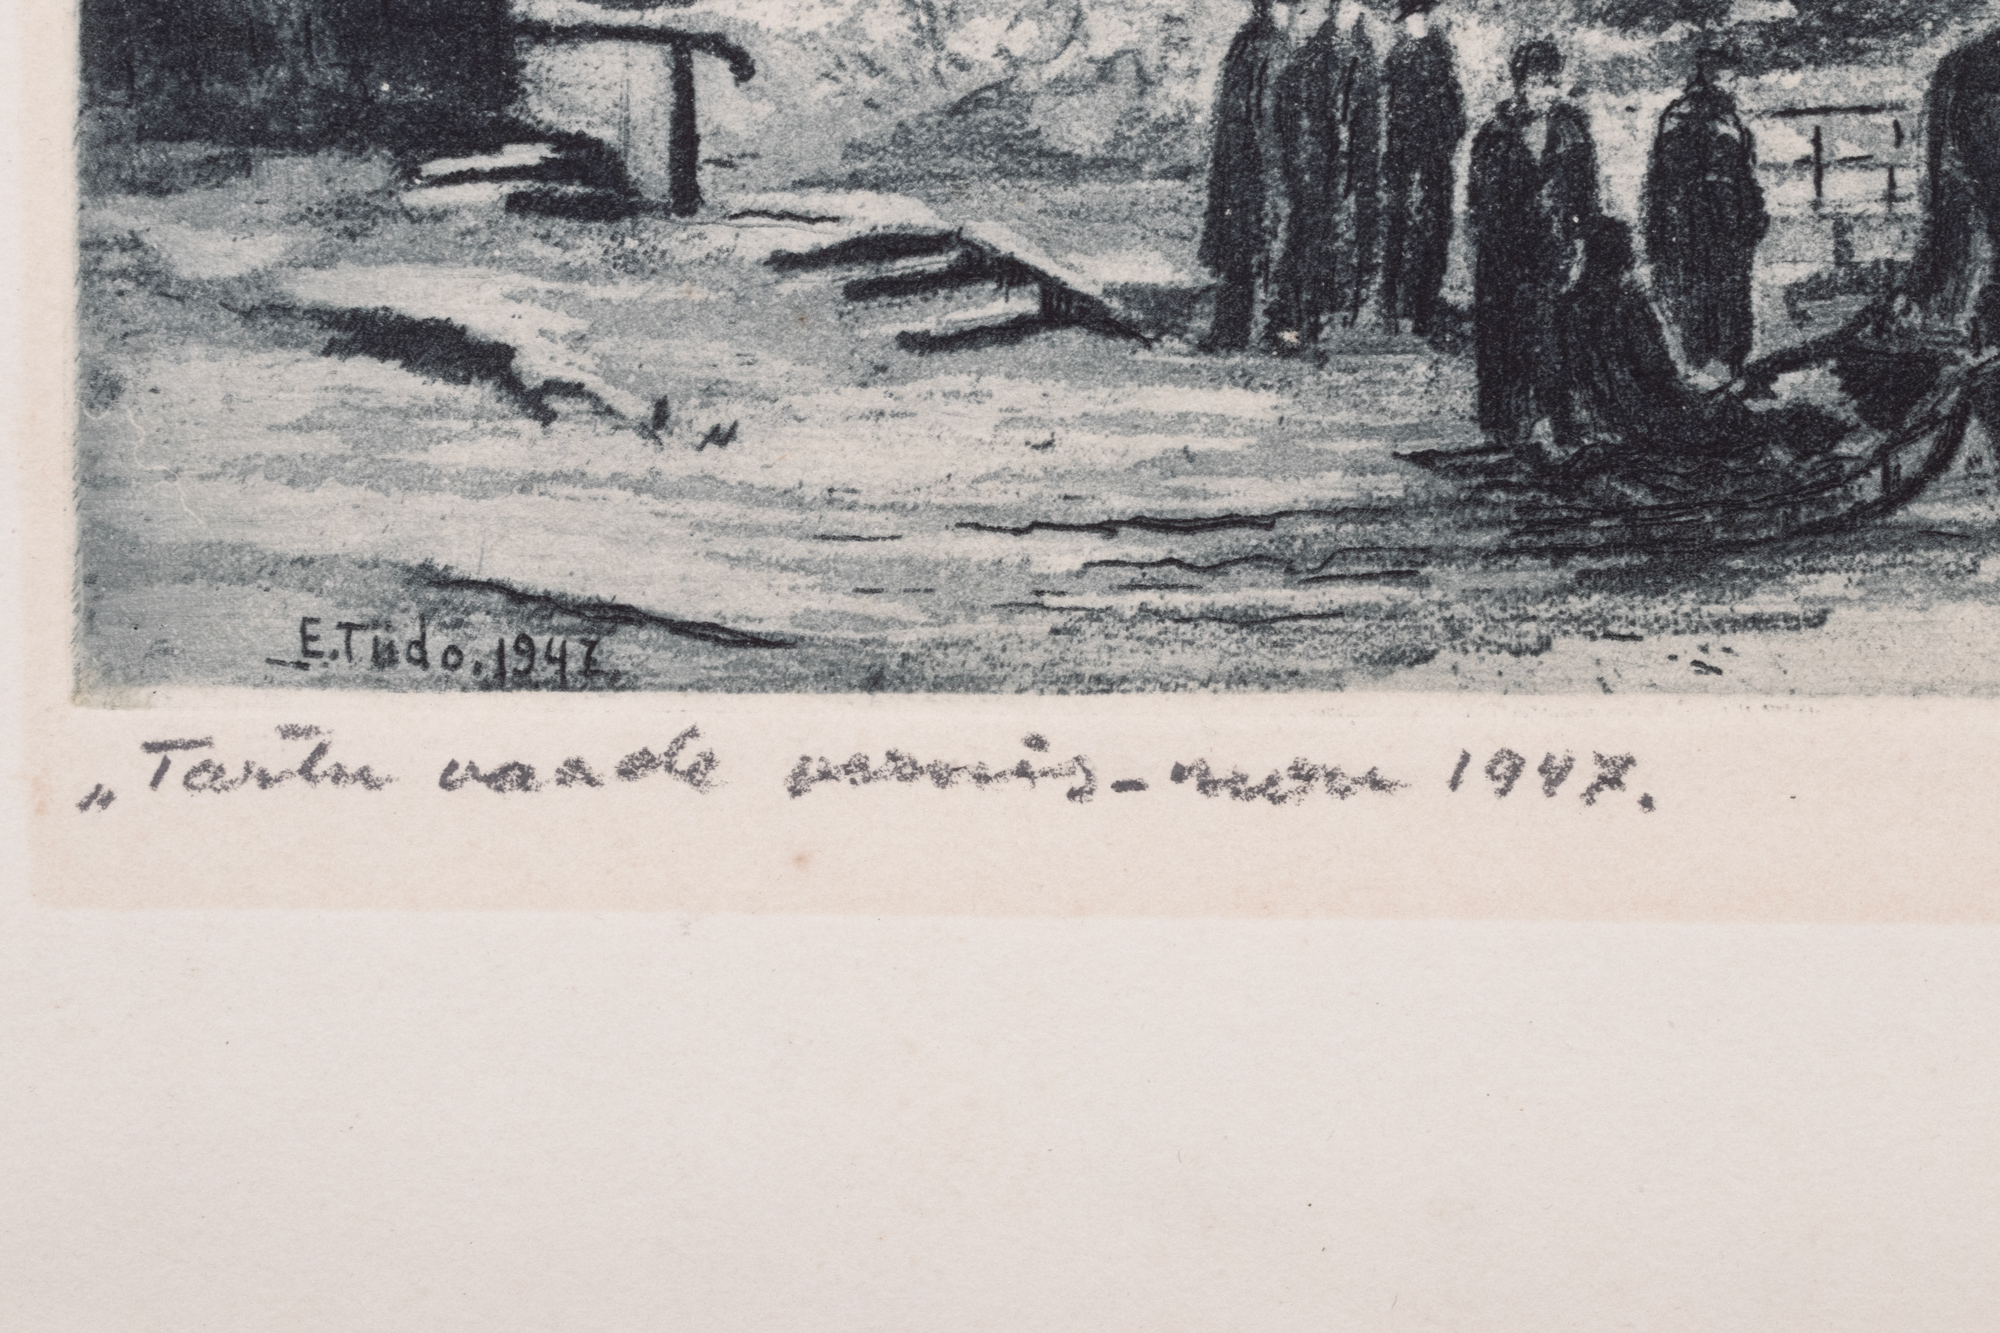 E.Tüdo.1947
„Tartu vaade vernis-mou 1947.